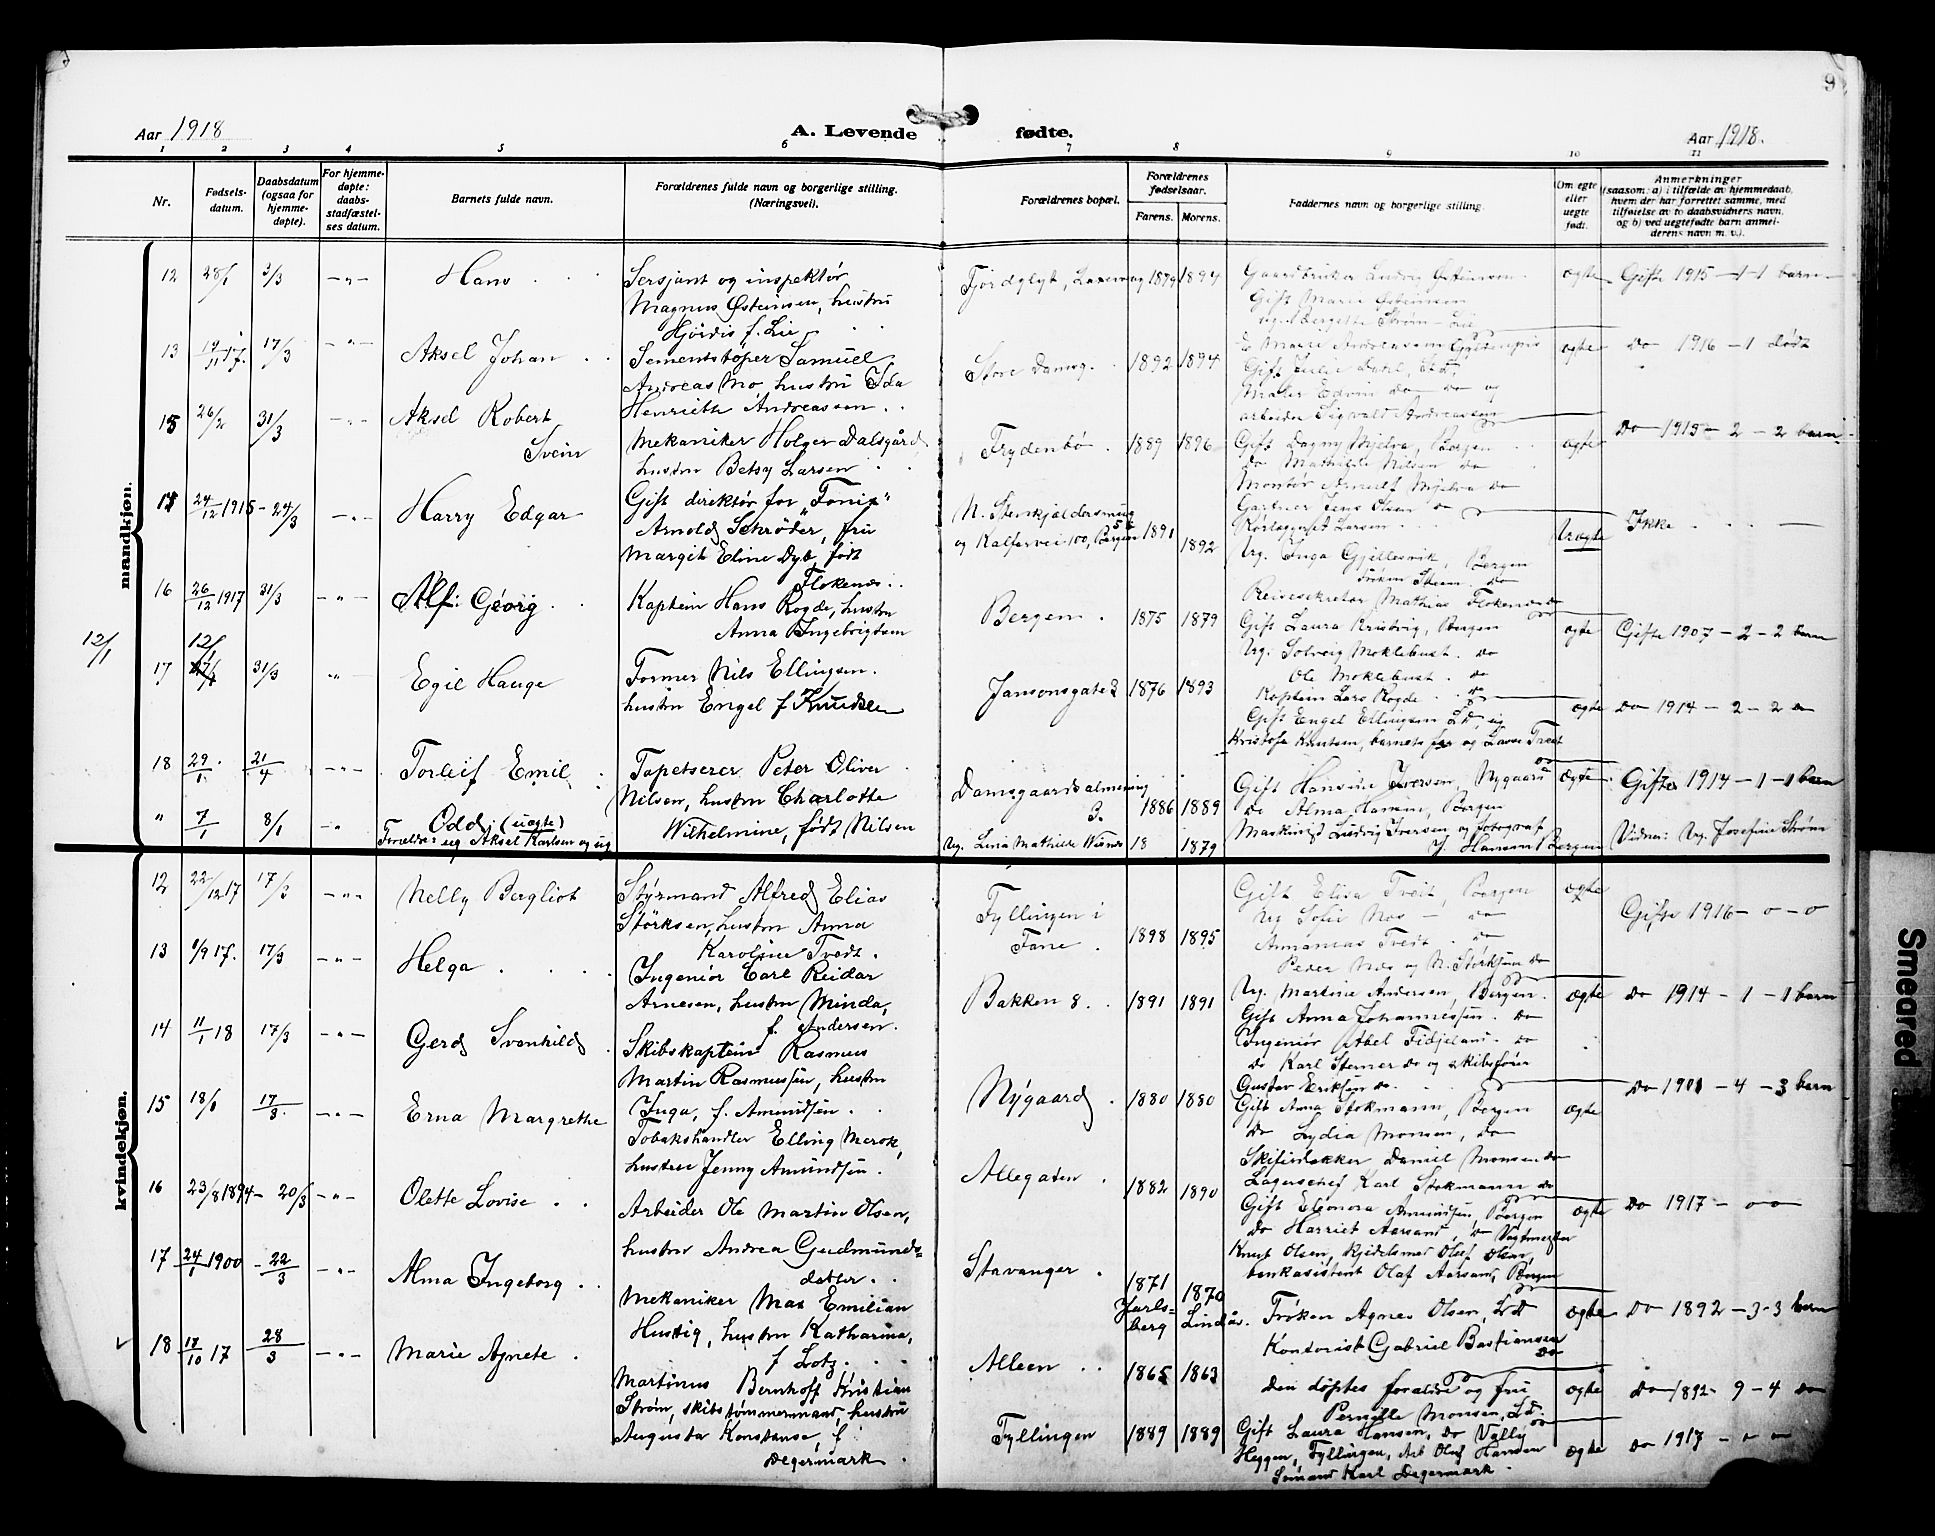 9
Aar 1918 A. Levende fødte. Aar 1918.
1 2 3 4 5 6 7 8 9 10 11
Nr.
Fødsels-
datum.
Daabsdatum
(ogsaa for
hjemme-
døpte).
For hjemme-
døpte:
daabs-
stadfæstel-
ses datum.
Barnets fulde navn.
Forældrenes fulde navn og borgerlige stilling.
(Næringsvei).
Forældrenes bopæl.
Forældrenes
fødselsaar.
Farens. Morens.
Faddernes navn og borgerlige stilling.
Om egte
eller
uegte
født.
Anmerkninger
(saasom: a) i tilfælde av hjemmedaab,
hvem der har forrettet samme, med
tilføielse av to daabsvidners navn,
og b) ved uegtefødte barn anmel-
derens navn m. v.).
mandkjøn.
12 28/1 3/3 -"- Hans
Sersjant og inspektør
Magnus Østeinsen, hustru
Hjördis f. Lie
Fjordglyt, 1879 1894
Gift Marie Østeinsen
egte Gifte 1915 - 1 - 1 barn
13 19/11 17. 17/3 -"- Aksel Johan
Sementstøper Samuel
Andreas Mo hustru Ida
Henriette Andreassen
Store Damsg. 1892 1894
arbeider Sigvald Andreassen
egte Do 1916 - 1 dødt
15 26/2 31/3 -"- Aksel Robert
Svein
Mekaniker Holger Dalsgård
hustru Betsy Larsen
Frydenbø 1889 1896
Gift Dagny Mjelva, Bergen
Do Mathilde Nilsen Do
egte Do 1915 - 2 - 2 barn
24/12 1915 - 24/3 -"- Harry Edgar
Gift direktør for "Fonix"
Arnold Schrøder, fru
Margit Eline Dyb, født
Flokenes
og Kalfarvei 100, Bergen 1891 1892
Gartner Jens Olsen Do
Reisesekretær Mathias Flokenes Do
uegte Ikke
16 26/12 1917 31/3 -"- Alf Georg
Kaptein Hans Rogde, hustru
Anna Ingebrigtsen
Bergen. 1875 1879
Gift Laura Kristvig, Bergen
Ug. Solveig Moklebust. Do
Ole Moklebust. Do
Kaptein Lars Rogde Do
egte Gifte 1907 - 2 - 2 barn
12/1
12/1
17 31/3 -"- Egil Hauge
Former Nils Ellingsen.
hustru Engel f Knudsen
Jansonsgate 2 1876 1893
Gift Engel Ellingsen L.D. og
Kristofa Knutsen, barnets far og Lava Tveit
egte Do 1914 - 2 - 2
18 29/1. 21/4 -"- Torleif Emil
Tapetserer Peter Oliver
Nilsen, hustru Charlotte
Wilhelmine, født Nilsen
Damsgaardsalmening
3. 1886 1889
Gift Hansine Iversen, Nygaard
Do Alma Hansen, Bergen
Maskinist Ludvig Iversen og fotograf
J. Hansen Bergen
egte. Gifte 1914 - 1 - 1 barn
" 7/1 8/1 -" Odd, (uegte)
Forældre: ug Aksel Karlsen og ug
Ug. Lina Mathilde Wisnes 18 1879
Vidner: Ug. Josefine Strøm
kvindekjøn.
12 22/12 17 17/3 -"- Nelly Bergliot
Styrmand Alfred Elias
Störksen, hustru Anna
Karoline Tvedt.
Fyllingen i
Fane. 1898 1895
Gift Elisa Tveit, Bergen
Ug Sofie Næs - Do
Ananias Tvedt. Do
Peder Næs og N. Störksen Do
egte Gifte 1916 - 0 - 0
13 1/9 17. 17/3 -"- Helga
Ingeniør Carl Reidar
Arnesen, hustru Minda,
f. Andersen.
Bakken 8. 1891 1891
Ug. Martine Andersen, Bergen.
Gift Anna Johannessen. Do
Ingeniør Abel Fidjeland. Do
Do Karl Sterner Do og skibsfører
Gustav Eriksen Do.
egte Do 1914 - 1 - 1 barn
14 11/1 18 17/3 -"- Gerd Svanhild
Skibskaptein Rasmus
Martin Rasmussen, hustru
Inga, f. Amundsen.
Nygaard 1880 1880
Gift Anna Stokmann, Bergen
Do Lydia Monsen, Do
Skibsmækker Daniel Monsen Do
Lagerschef Karl Stokmann Do
egte Do 1901 - 4 - 3 barn
15 18/1 17/3. -"- Erna Margrethe
Tobakshandler Elling Merok,
hustru Jenny Amundsen.
Allegaten. 1882 1890
Gift Eleonora Amundsen, Bergen
Do Harriet Aarsand, Do Vagtmester
Knut Olsen, Kjedelsmed Olaf Olsen,
bankasistent Olaf Aarsand, Bergen
egte Do 1917 - 0 0
16 23/8 1894 - 20/3 -"- Olette Lovise
Arbeider Ole Martin Olsen,
hustru Andrea Gudmunds-
datter.
Stavanger. 1871 1870
Jarls-
berg Lindås.
Frøken Agnes Olsen, L.D
Kontorist Gabriel Bastiansen
Do
egte Do 1892 - 3 - 3 barn
17 24/1 1900 - 22/3 -"- Alma Ingeborg
Mekaniker Max Emilian
Hustig, hustru Katharina,
f Lotz.
Alleen 1865 1863
Den døptes forældre og fru
Pernille Monsen, L.D.
egte Do 1892 - 9 - 4 Do
18 18/10 17 28/3 -"- Marie Agnete.
Martinus Bernhoff Kristian
Strøm, skibstømmermand, hustru
Augusta Konstanse, f.
Degermark.
Fyllingen 1889 1889
Gift Laura Hansen, Do Vally
Heggen, Fyllingen, Arb Olaf Hansen
Sømand Karl Degermark.
egte Do 1917 - 0 0
Smeared